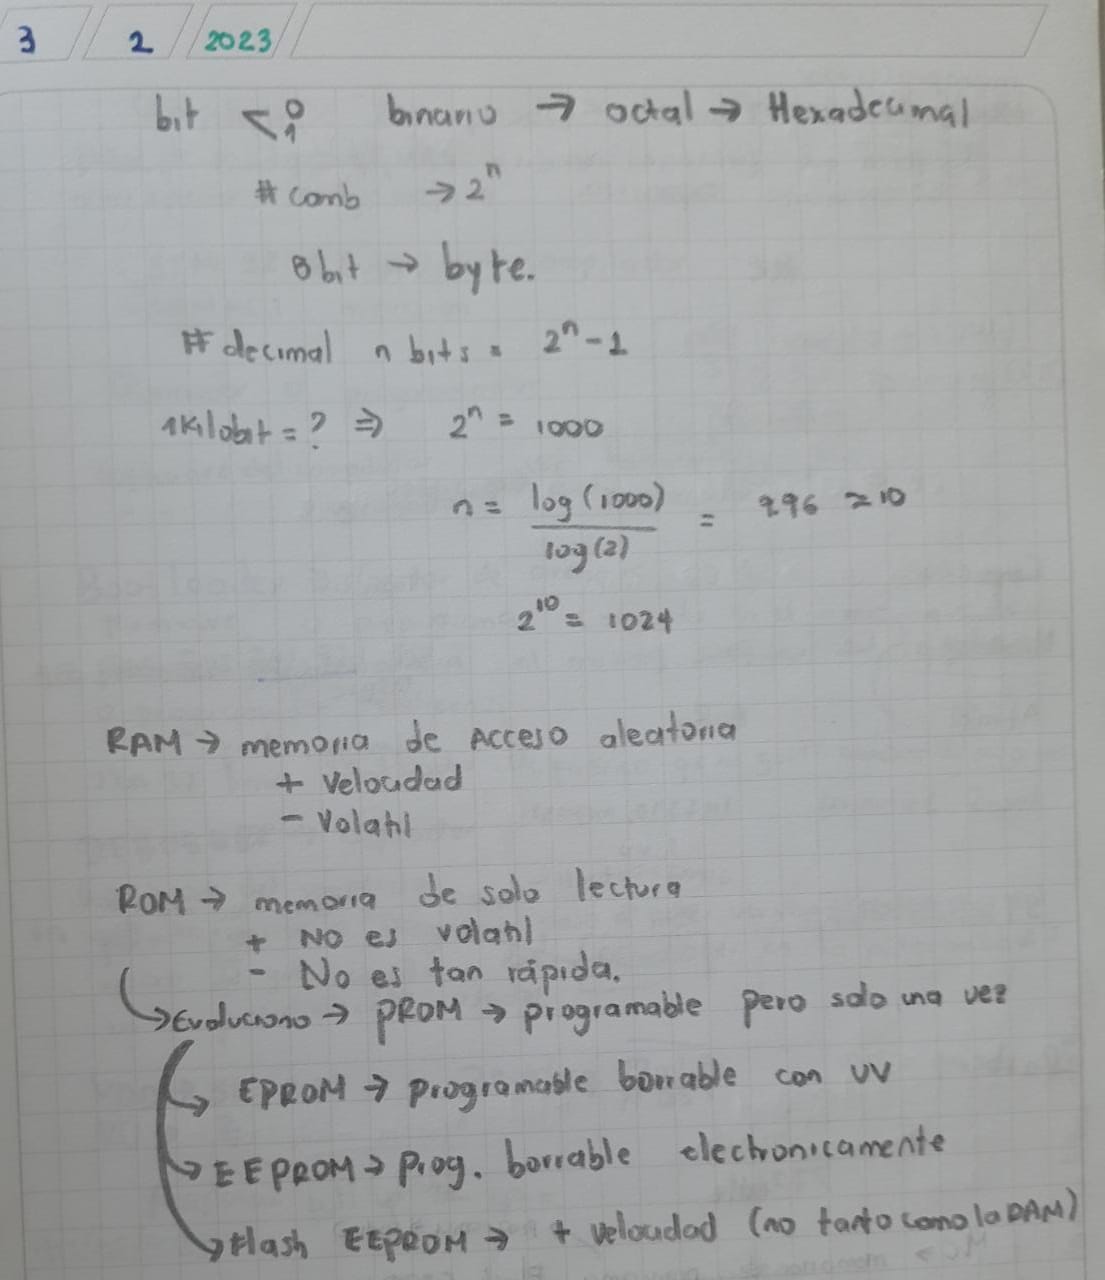 3 2 2023
bit < 0 1 binario → octal → Hexadecimal
# comb → 2^n
8bit → byte.
# decimal n bits = 2^n - 1
1Kilobit = ? ⇒ 2^n = 1000
n = log(1000) / log(2) = 9.96 ≈ 10
2^10 = 1024
RAM → memoria de Acceso aleatoria
+ Velocidad
- Volatil
ROM → memoria de solo lectura
+ NO es volatil
- No es tan rápida.
↳ Evoluciono → PROM → programable pero solo una vez
→ EPROM → programable borrable con UV
→ EEPROM → Prog. borrable electronicamente
→ Flash EEPROM → + velocidad (no tanto como la RAM)